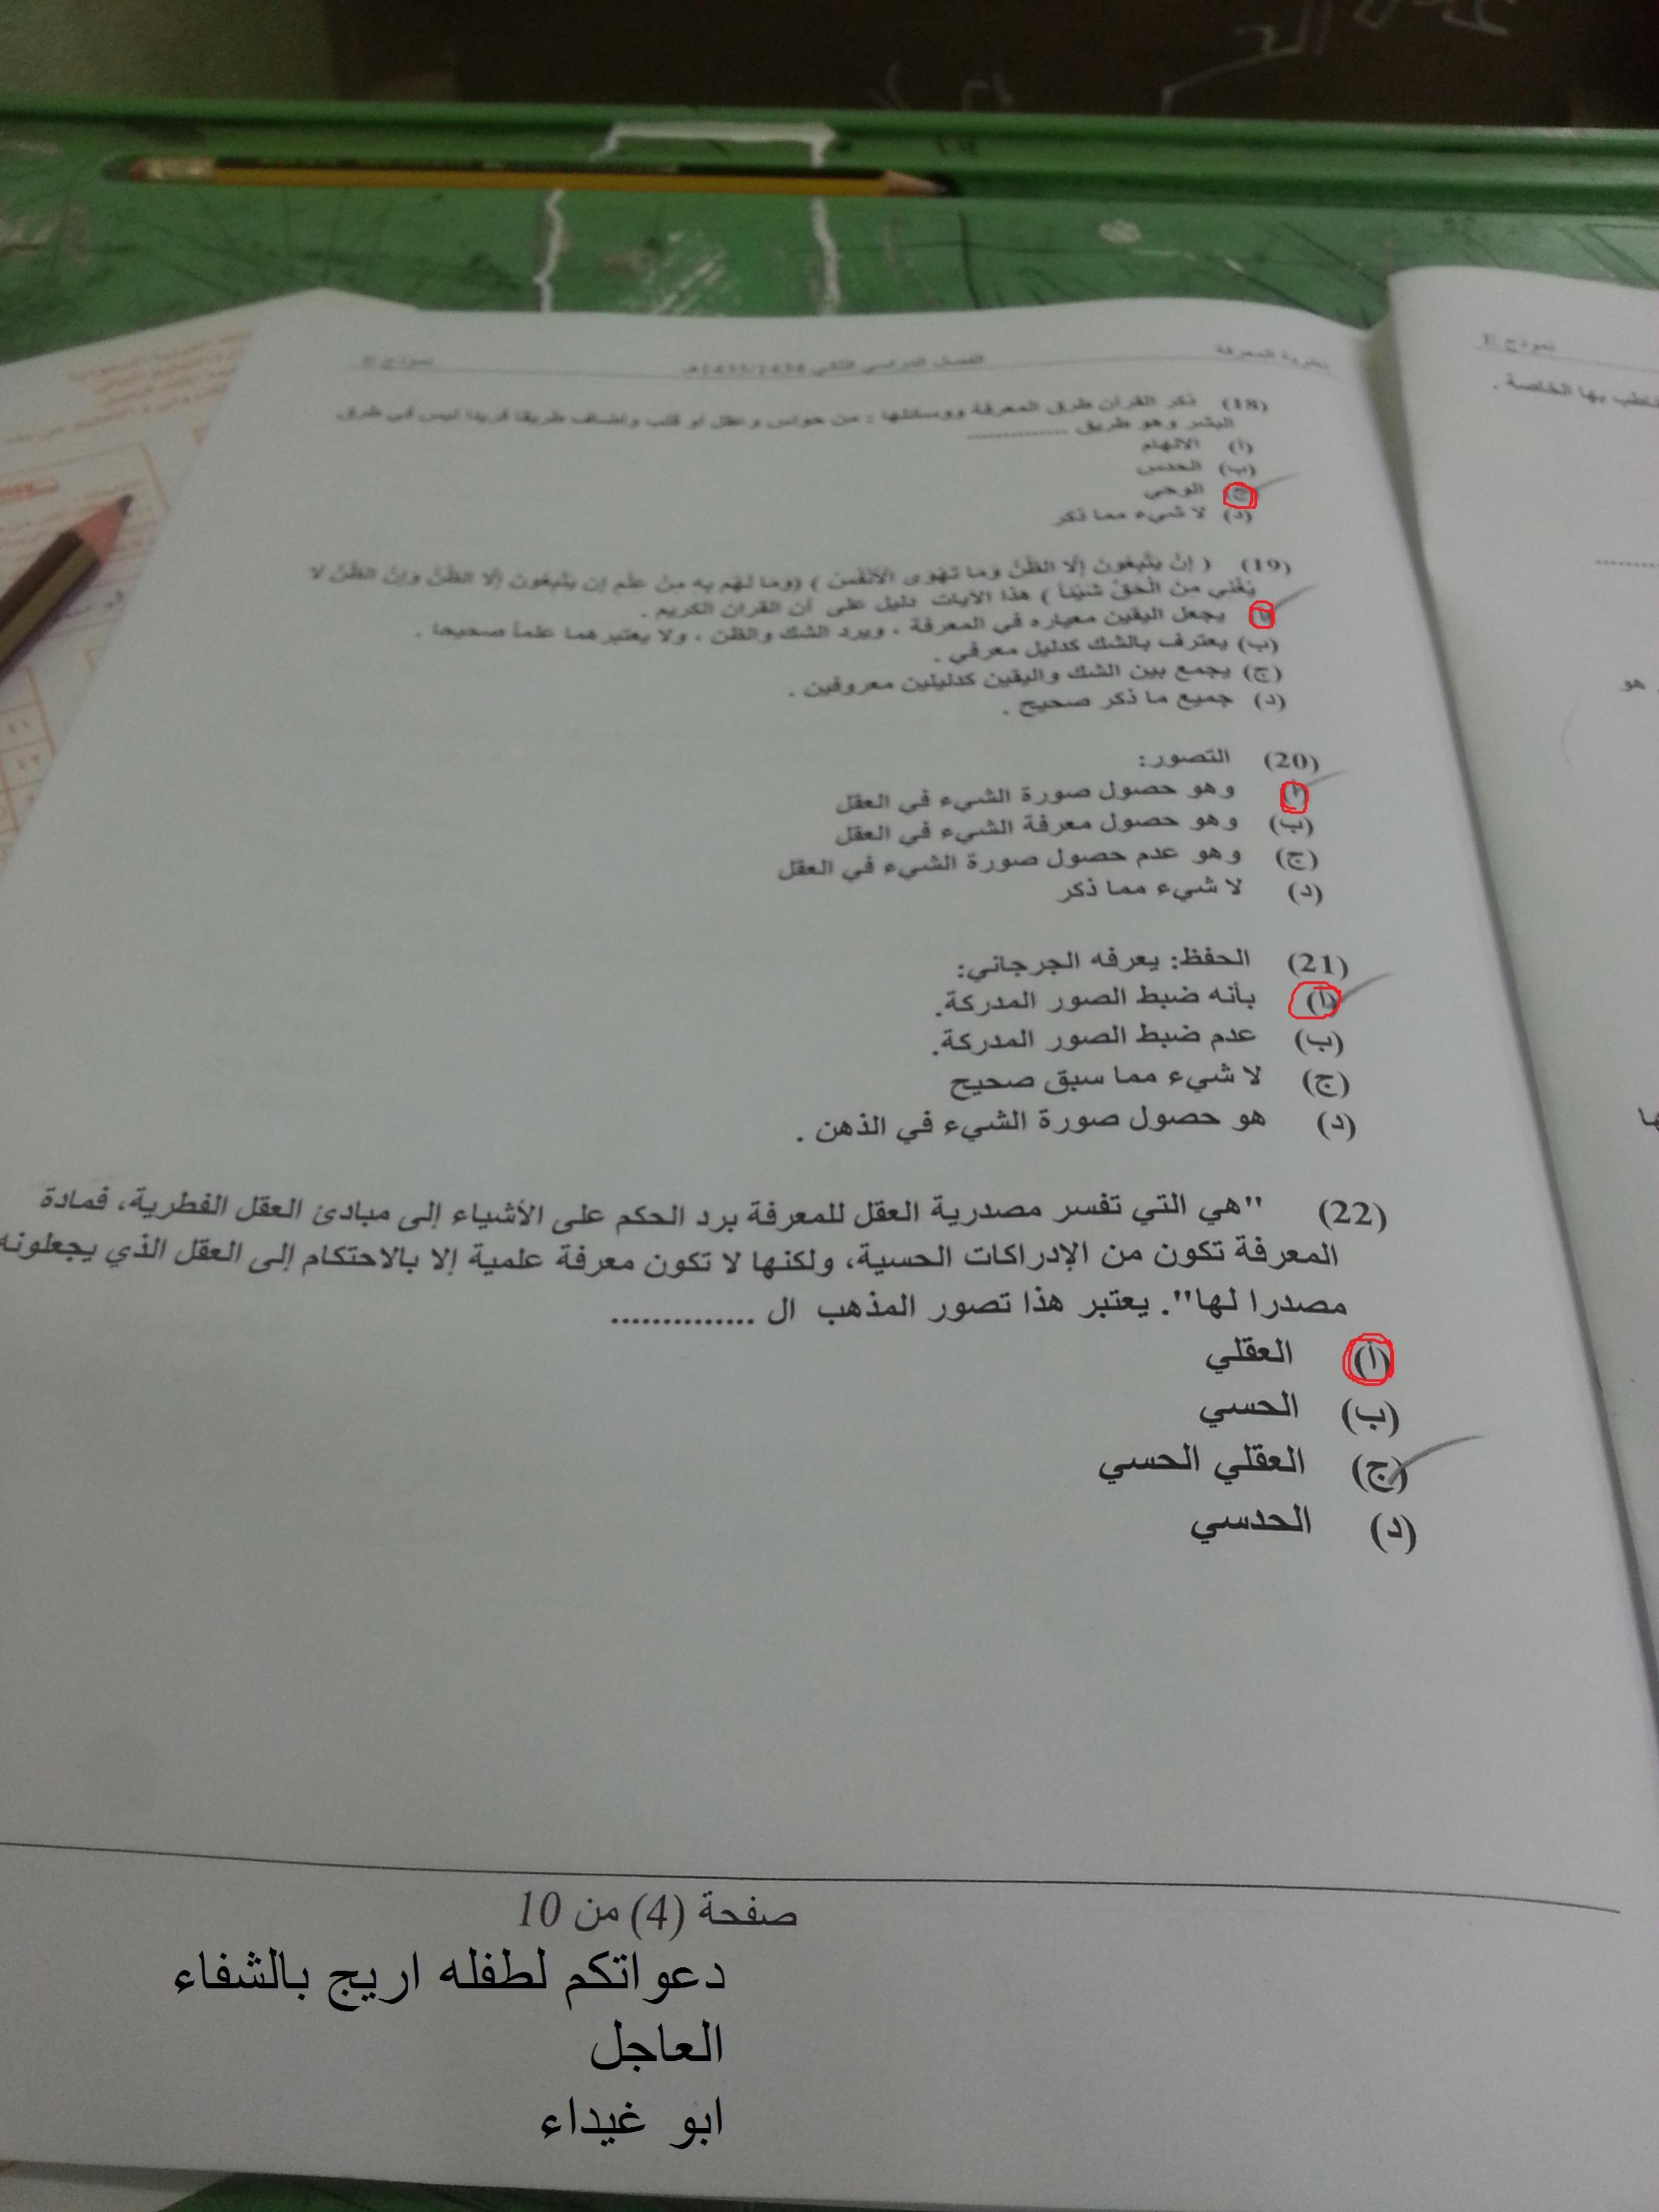 نظرية المعرفة
الفصل الدراسي الثاني 1433/1434هـ
نموذج E
(18) ذكر القرآن طرق المعرفة ووسائلها : من حواس وعقل او قلب واضاف طريقا فريدا ليس في طرق
البشر وهو طريق ..............
(أ) الالهام
(ب) الحدس
(ج) الوحي
(د) لا شيء مما ذكر
(19) ( إِنْ يَتَّبِعُون إِلَّا الظَّنَّ وما تَهْوَى الْأَنْفُسُ ) (وما لهُم بِه مِنْ عِلْمٍ إِن يتَّبِعُون إِلَّا الظَّنَّ وإِنَّ الظَّنَّ لا
يُغْنِي من الْحَقِّ شَيْئاً ) هذا الآيات دليل على أن القران الكريم .
(أ) يجعل اليقين معياره في المعرفة ، ويرد الشك والظن ، ولا يعتبرهما علماً صحيحا .
(ب) يعترف بالشك كدليل معرفي .
(ج) يجمع بين الشك واليقين كدليلين معروفين .
(د) جميع ما ذكر صحيح .
(20) التصور:
(أ) وهو حصول صورة الشيء في العقل
(ب) وهو حصول معرفة الشيء في العقل
(ج) وهو عدم حصول صورة الشيء في العقل
(د) لا شيء مما ذكر
(21) الحفظ: يعرفه الجرجاني:
(أ) بأنه ضبط الصور المدركة.
(ب) عدم ضبط الصور المدركة.
(ج) لا شيء مما سبق صحيح
(د) هو حصول صورة الشيء في الذهن .
(22) "هي التي تفسر مصدرية العقل للمعرفة برد الحكم على الأشياء إلى مبادئ العقل الفطرية، فمادة
المعرفة تكون من الإدراكات الحسية، ولكنها لا تكون معرفة علمية إلا بالاحتكام إلى العقل الذي يجعلونه
مصدرا لها". يعتبر هذا تصور المذهب ال ..............
(أ) العقلي
(ب) الحسي
(ج) العقلي الحسي
(د) الحدسي
صفحة (4) من 10
دعواتكم لطفله اريج بالشفاء
العاجل
ابو غيداء
نموذج E
بها الخاصة .
هو